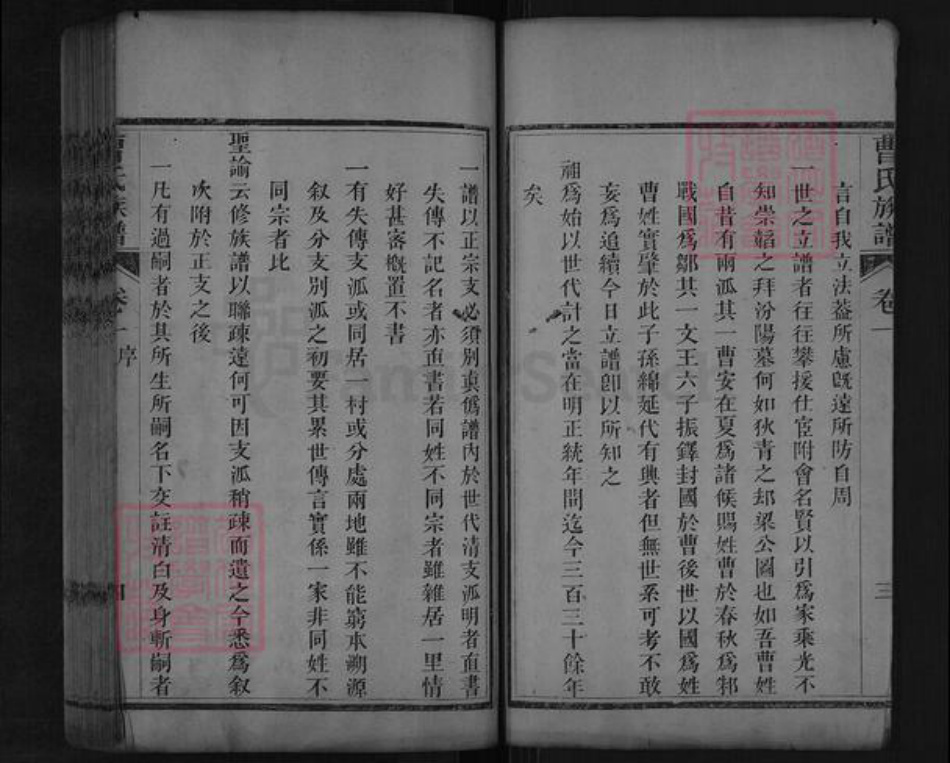 曹氏族譜
卷一
三
言自我立法葢所慮旣遠所防自周
世之立譜者往往攀援仕宦附會名賢以引爲家乘光不
知崇韜之拜汾陽墓何如狄青之却梁公圖也如吾曹姓
自昔有兩派其一曹安在夏爲諸候賜姓曹於春秋爲邾
戰國爲鄒其一文王六子振鐸封國於曹後世以國爲姓
曹姓實肇於此子孫綿延代有興者但無世系可考不敢
妄爲追續今日立譜卽以所知之
祖爲始以世代計之當在明正統年間迄今三百三十餘年
矣
一譜以正宗支必須別真僞譜內於世代清支派明者直書
失傳不記名者亦直書若同姓不同宗者雖雜居一里情
好甚密概置不書
一有失傳支派或同居一村或分處兩地雖不能窮本溯源
叙及分支別派之初要其累世傳言實係一家非同姓不
同宗者比
聖諭云修族譜以聯疎遠何可因支派稍疎而遺之今悉爲叙
次附於正支之後
一凡有過嗣者於其所生所嗣名下交註清白及身斬嗣者
曹氏族譜
卷一
序
四
FamilySearch